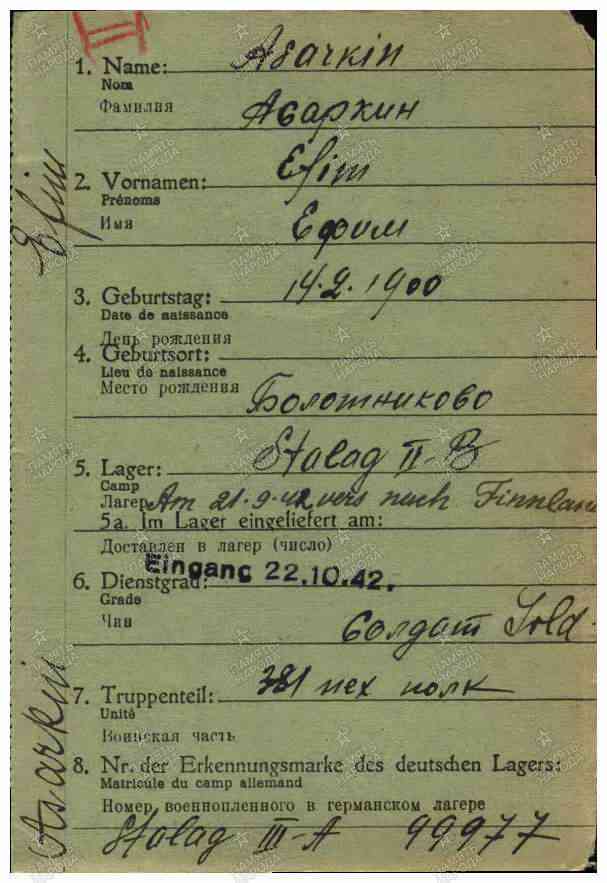 1. Name: Asarkin
Nom
Фамилия Асаркин
2. Vornamen: Efim
Prénoms
Имя Ефим
3. Geburtstag: 14.2.1900
Date de naissance
День рождения
4. Geburtsort:
Lieu de naissance
Место рождения Болотниково
5. Lager: Stalag II-B
Camp
Лагерь Am 21.9.42 vers nach Finnland
5a. Im Lager eingeliefert am:
Доставлен в лагерь (число)
Eingang 22.10.42.
6. Dienstgrad:
Grade
Чин Солдат Sold.
7. Truppenteil: 381 пех полк
Unité
Воинская часть
8. Nr. der Erkennungsmarke des deutschen Lagers:
Matricule du camp allemand
Номер военнопленного в германском лагере
Stalag III-A 99977
Efim
Asarkin
ПАМЯТЬ НАРОДА